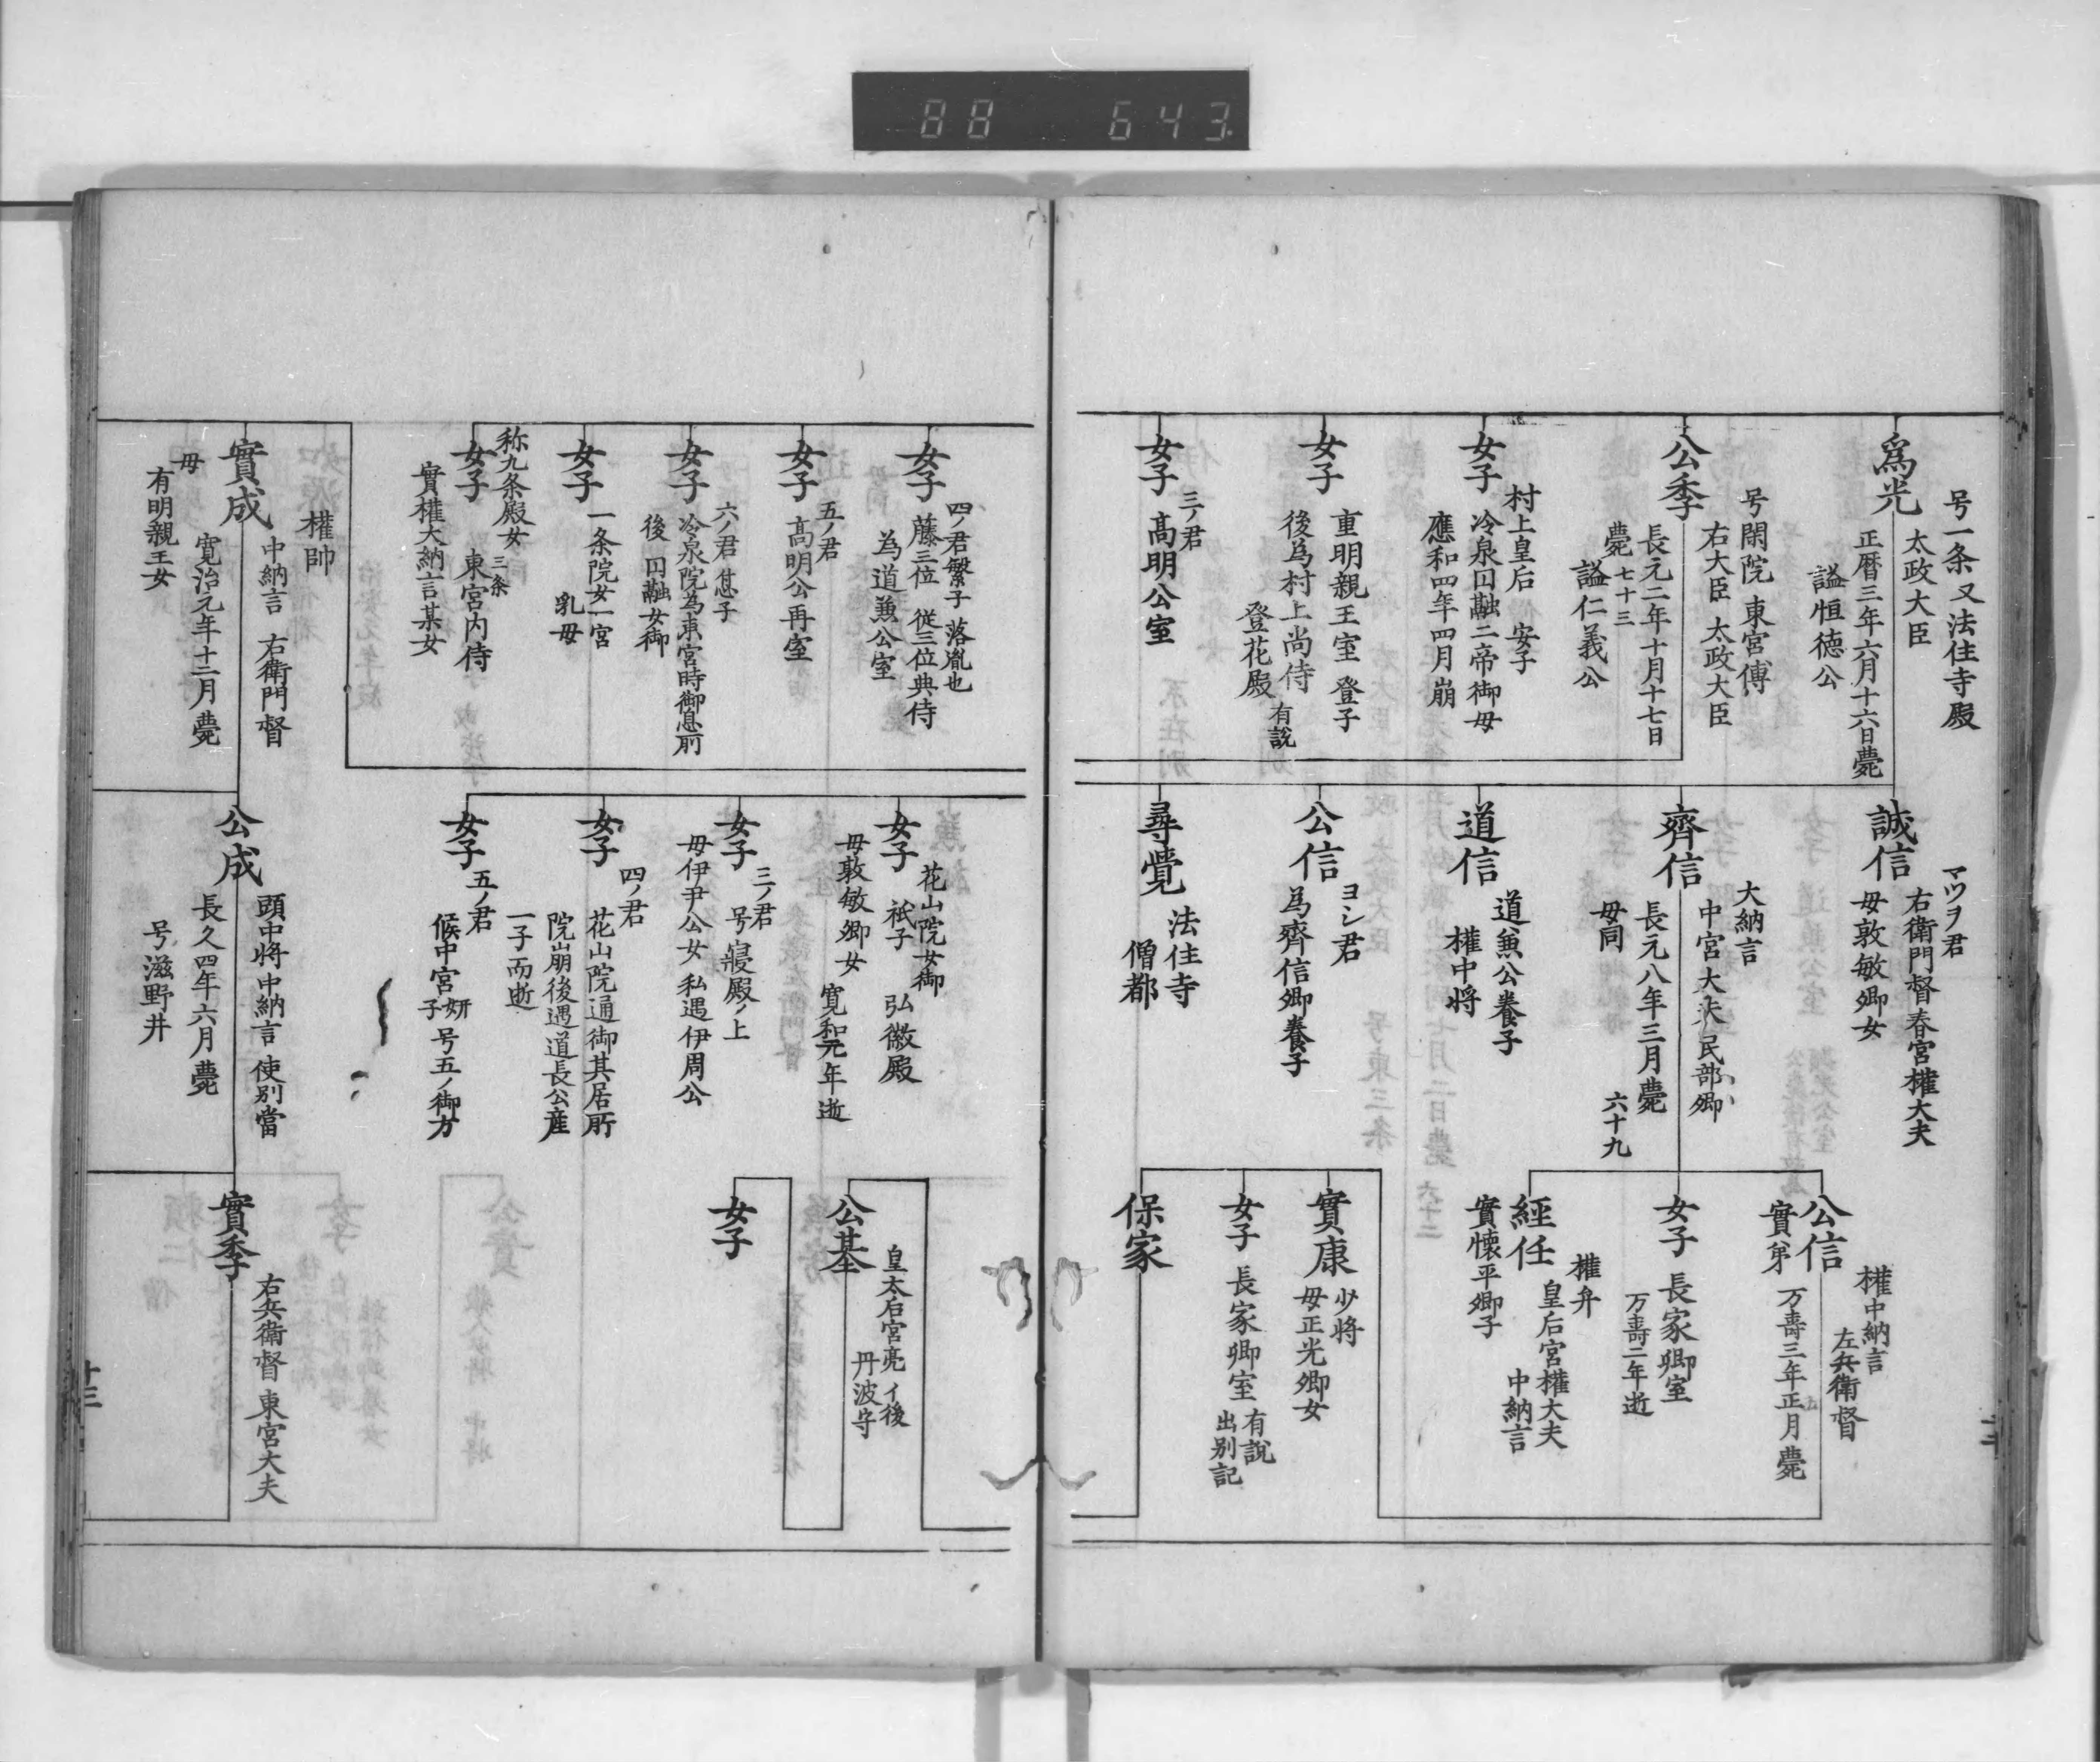 88 643
為光
号一条又法住寺殿
太政大臣
正暦三年六月十六日薨
謚恒徳公
公季
号閑院 東宮傅
右大臣 太政大臣
長元二年十月十七日
薨 七十三
謚仁義公
女子
村上皇后 安子
冷泉円融二帝御母
應和四年四月崩
女子
重明親王室 登子
後為村上尚侍 有説
登花殿
女子
三ノ君
高明公室
誠信
マツヲ君
右衛門督春宮權大夫
母敦敏卿女
齊信
大納言
中宮大夫民部卿
長元八年三月薨 六十九
母同
道信
道兼公養子
權中将
公信
ヨシ君
為齊信卿養子
尋覺
法住寺
僧都
公信
實弟
權中納言
左兵衛督
万壽三年正月薨
女子
長家卿室
万壽二年逝
經任
權弁
皇后宮權大夫
中納言
實懐平卿子
實康
少将
母正光卿女
女子
長家卿室 有説
出別記
保家
女子
四ノ君繁子 落胤也
藤三位 従三位典侍
為道兼公室
女子
五ノ君
高明公再室
女子
六ノ君 怤子
冷泉院為東宮時御息所
後 円融女御
女子
一条院女一宮
乳母
称九条殿女 三条
女子
東宮内侍
實權大納言某女
權帥
實成
中納言 右衛門督
寛治元年十二月薨
母
有明親王女
女子
花山院女御
祇子 弘徽殿
母敦敏卿女 寛和元年逝
女子
三ノ君
号寝殿ノ上
母伊尹公女 私遇伊周公
女子
四ノ君
花山院通御其居所
院崩後遇道長公産
一子而逝
女子
五ノ君
候中宮妍子 号五ノ御方
公成
頭中将 中納言 使別當
長久四年六月薨
号滋野井
公基
皇太后宮亮 イ後
丹波守
女子
實季
右兵衛督 東宮大夫
十三